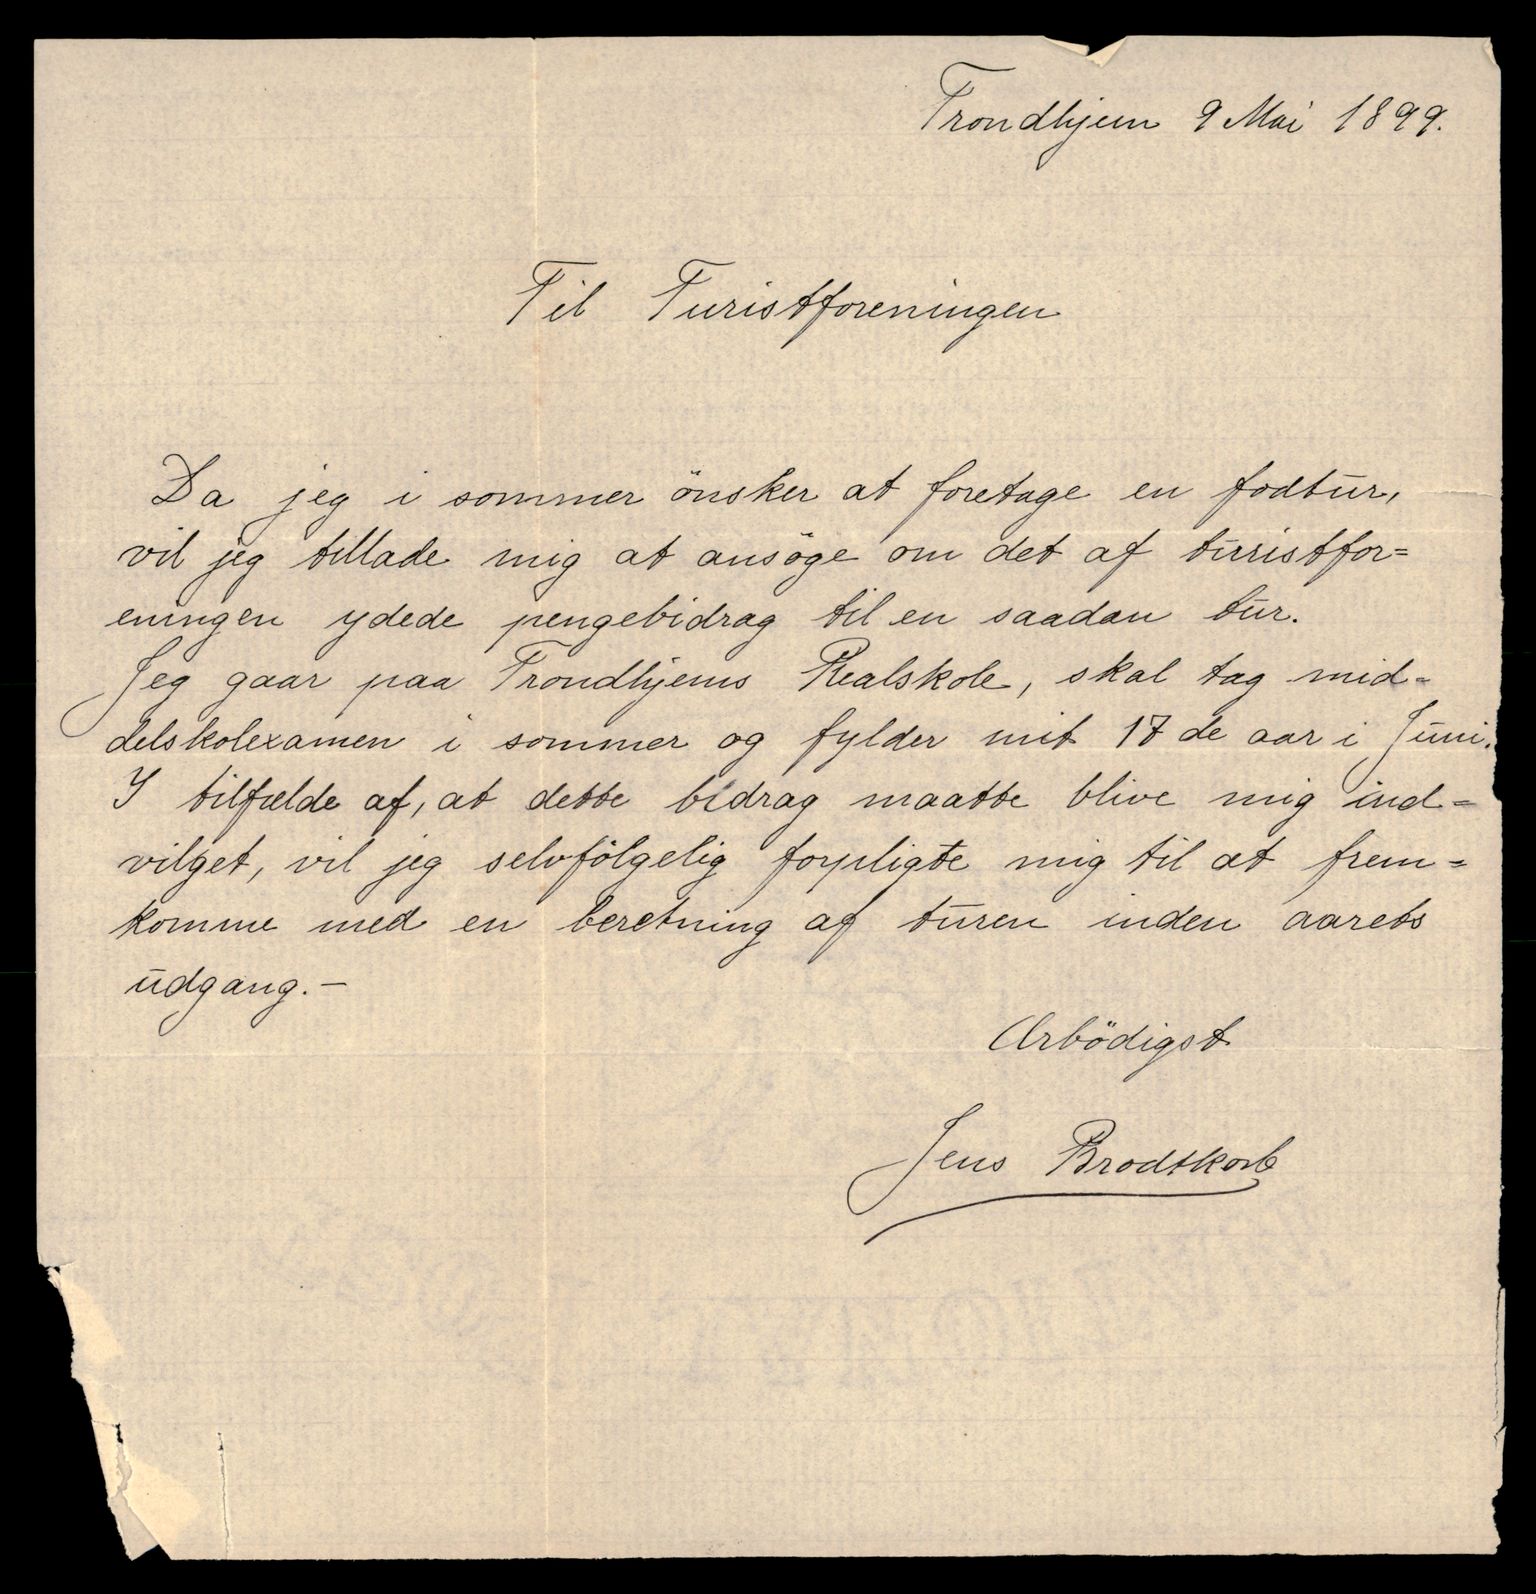 Trondhjem 9 Mai 1899.
Til Turistforeningen
Da jeg i sommer önsker at foretage en fodtur,
vil jeg tillade mig at ansöge om det af turistfor=
eningen ydede pengebidrag til en saadan tur.
Jeg gaar paa Trondhjems Realskole, skal tag mid=
delskolexamen i sommer og fylder mit 17de aar i Juni.
I tilfælde af, at dette bidrag maatte blive mig ind=
vilget, vil jeg selvfölgelig forpligte mig til at frem=
komme med en beretning af turen inden aarets
udgang.—
Ærbödigst
Jens Brodtkorb